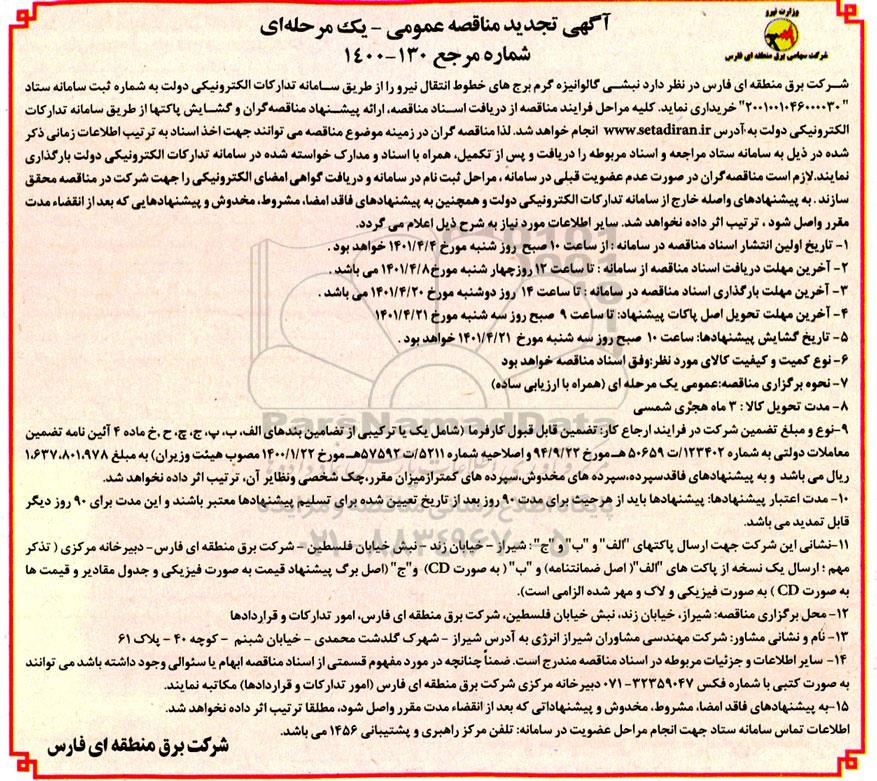 وزارت نیرو
شرکت سهامی برق منطقه ای فارس
آگهی تجدید مناقصه عمومی - یک مرحله‌ای
شماره مرجع ۱۳۰-۱۴۰۰
شرکت برق منطقه ای فارس در نظر دارد نبشی گالوانیزه گرم برج های خطوط انتقال نیرو را از طریق سامانه تدارکات الکترونیکی دولت به شماره ثبت سامانه ستاد
"۲۰۰۱۰۰۱۰۴۶۰۰۰۰۳۰" خریداری نماید. کلیه مراحل فرایند مناقصه از دریافت اسناد مناقصه، ارائه پیشنهاد مناقصه‌گران و گشایش پاکتها از طریق سامانه تدارکات
الکترونیکی دولت به آدرس www.setadiran.ir انجام خواهد شد. لذا مناقصه گران در زمینه موضوع مناقصه می توانند جهت اخذ اسناد به ترتیب اطلاعات زمانی ذکر
شده در ذیل به سامانه ستاد مراجعه و اسناد مربوطه را دریافت و پس از تکمیل، همراه با اسناد و مدارک خواسته شده در سامانه تدارکات الکترونیکی دولت بارگذاری
نمایند. لازم است مناقصه‌گران در صورت عدم عضویت قبلی در سامانه ، مراحل ثبت نام در سامانه و دریافت گواهی امضای الکترونیکی را جهت شرکت در مناقصه محقق
سازند . به پیشنهادهای واصله خارج از سامانه تدارکات الکترونیکی دولت و همچنین به پیشنهادهای فاقد امضا، مشروط، مخدوش و پیشنهادهایی که بعد از انقضاء مدت
مقرر واصل شود ، ترتیب اثر داده نخواهد شد. سایر اطلاعات مورد نیاز به شرح ذیل اعلام می گردد.
۱- تاریخ اولین انتشار اسناد مناقصه در سامانه : از ساعت ۱۰ صبح روز شنبه مورخ ۱۴۰۱/۴/۴ خواهد بود .
۲- آخرین مهلت دریافت اسناد مناقصه از سامانه : تا ساعت ۱۲ روزچهار شنبه مورخ ۱۴۰۱/۴/۸ می باشد .
۳- آخرین مهلت بارگذاری اسناد مناقصه در سامانه : تا ساعت ۱۴ روز دوشنبه مورخ ۱۴۰۱/۴/۲۰ می باشد .
۴- آخرین مهلت تحویل اصل پاکات پیشنهاد: تا ساعت ۹ صبح روز سه شنبه مورخ ۱۴۰۱/۴/۲۱
۵- تاریخ گشایش پیشنهادها: ساعت ۱۰ صبح روز سه شنبه مورخ ۱۴۰۱/۴/۲۱ خواهد بود .
۶- نوع کمیت و کیفیت کالای مورد نظر:وفق اسناد مناقصه خواهد بود
۷- نحوه برگزاری مناقصه:عمومی یک مرحله ای (همراه با ارزیابی ساده)
۸- مدت تحویل کالا : ۳ ماه هجری شمسی
۹-نوع و مبلغ تضمین شرکت در فرایند ارجاع کار: تضمین قابل قبول کارفرما (شامل یک یا ترکیبی از تضامین بندهای الف، ب، پ، ج، چ، ح ,خ ماده ۴ آئین نامه تضمین
معاملات دولتی به شماره ۱۲۳۴۰۲/ت ۵۰۶۵۹ هـ مورخ ۹۴/۹/۲۲ و اصلاحیه شماره ۵۲۱۱/ت ۵۷۵۹۲هـ مورخ ۱۴۰۰/۱/۲۲ مصوب هیئت وزیران) به مبلغ ۱,۶۳۷,۸۰۱,۹۷۸
ریال می باشد و به پیشنهادهای فاقدسپرده،سپرده های مخدوش،سپرده های کمترازمیزان مقرر،چک شخصی ونظایر آن، ترتیب اثر داده نخواهد شد.
۱۰- مدت اعتبار پیشنهادها: پیشنهادها باید از هرحیث برای مدت ۹۰ روز بعد از تاریخ تعیین شده برای تسلیم پیشنهادها معتبر باشند و این مدت برای ۹۰ روز دیگر
قابل تمدید می باشد.
۱۱-نشانی این شرکت جهت ارسال پاکتهای "الف" و "ب" و "ج": شیراز - خیابان زند - نبش خیابان فلسطین - شرکت برق منطقه ای فارس- دبیرخانه مرکزی ( تذکر
مهم : ارسال یک نسخه از پاکت های "الف"( اصل ضمانتنامه) و "ب" ( به صورت CD) و"ج" (اصل برگ پیشنهاد قیمت به صورت فیزیکی و جدول مقادیر و قیمت ها
به صورت CD ) به صورت فیزیکی و لاک و مهر شده الزامی است).
۱۲- محل برگزاری مناقصه: شیراز، خیابان زند، نبش خیابان فلسطین، شرکت برق منطقه ای فارس، امور تدارکات و قراردادها
۱۳- نام و نشانی مشاور: شرکت مهندسی مشاوران شیراز انرژی به آدرس شیراز - شهرک گلدشت محمدی - خیابان شبنم - کوچه ۴۰ - پلاک ۶۱
۱۴- سایر اطلاعات و جزئیات مربوطه در اسناد مناقصه مندرج است. ضمناً چنانچه در مورد مفهوم قسمتی از اسناد مناقصه ابهام یا سئوالی وجود داشته باشد می توانند
به صورت کتبی با شماره فکس ۳۲۳۵۹۰۴۷-۰۷۱ دبیرخانه مرکزی شرکت برق منطقه ای فارس (امور تدارکات و قراردادها) مکاتبه نمایند.
۱۵-به پیشنهادهای فاقد امضا، مشروط، مخدوش و پیشنهاداتی که بعد از انقضاء مدت مقرر واصل شود، مطلقا ترتیب اثر داده نخواهد شد.
اطلاعات تماس سامانه ستاد جهت انجام مراحل عضویت در سامانه: تلفن مرکز راهبری و پشتیبانی ۱۴۵۶ می باشد.
شرکت برق منطقه ای فارس
ParsNamadData
۰۲۱-۸۸۳۴۹۶۷۰-۵